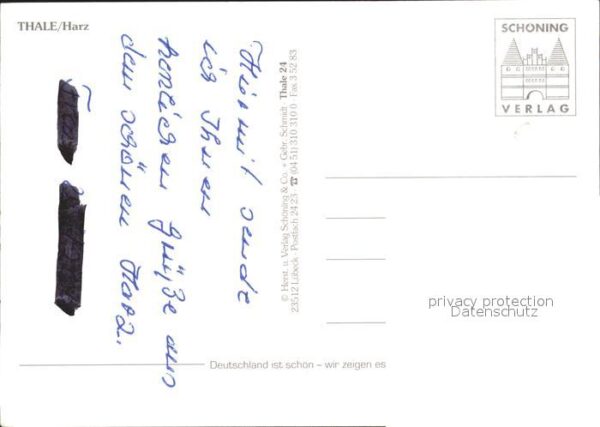 THALE/Harz
SCHÖNING
VERLAG
Hiermit sende
ich Ihnen
herzlichen Grüße aus
dem schönen Harz.
© Herst. u. Verlag Schöning & Co. + Gebr. Schmidt · Thale 24
23512 Lübeck · Postfach 24 23 · ☎ (04 51) 310 310 0 · Fax 3 52 83
privacy protection
Datenschutz
Deutschland ist schön – wir zeigen es